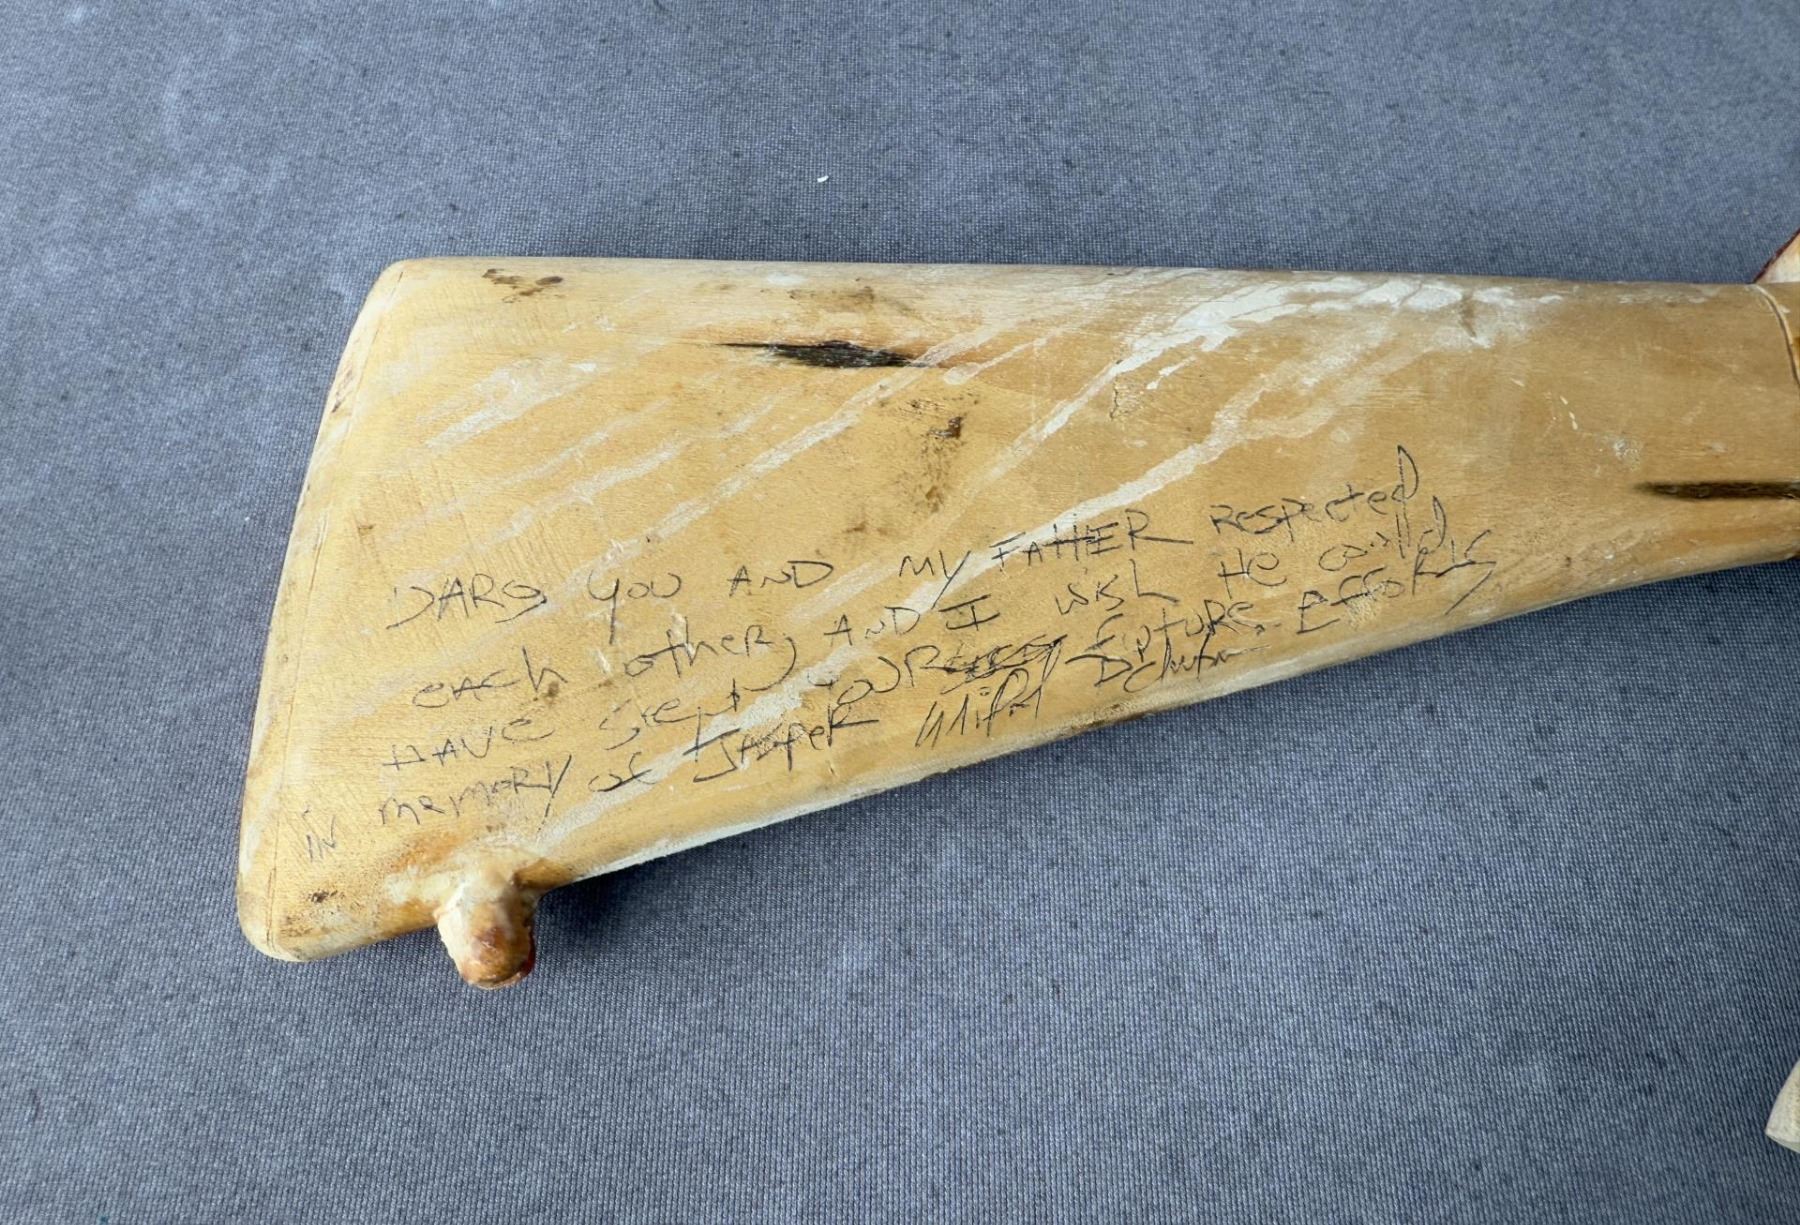 YOU AND MY FATHER RESPECTED
each other, AND I wish He could
HAVE SEEN YOUR FUTURE EFFORTS
IN memory of JASPER